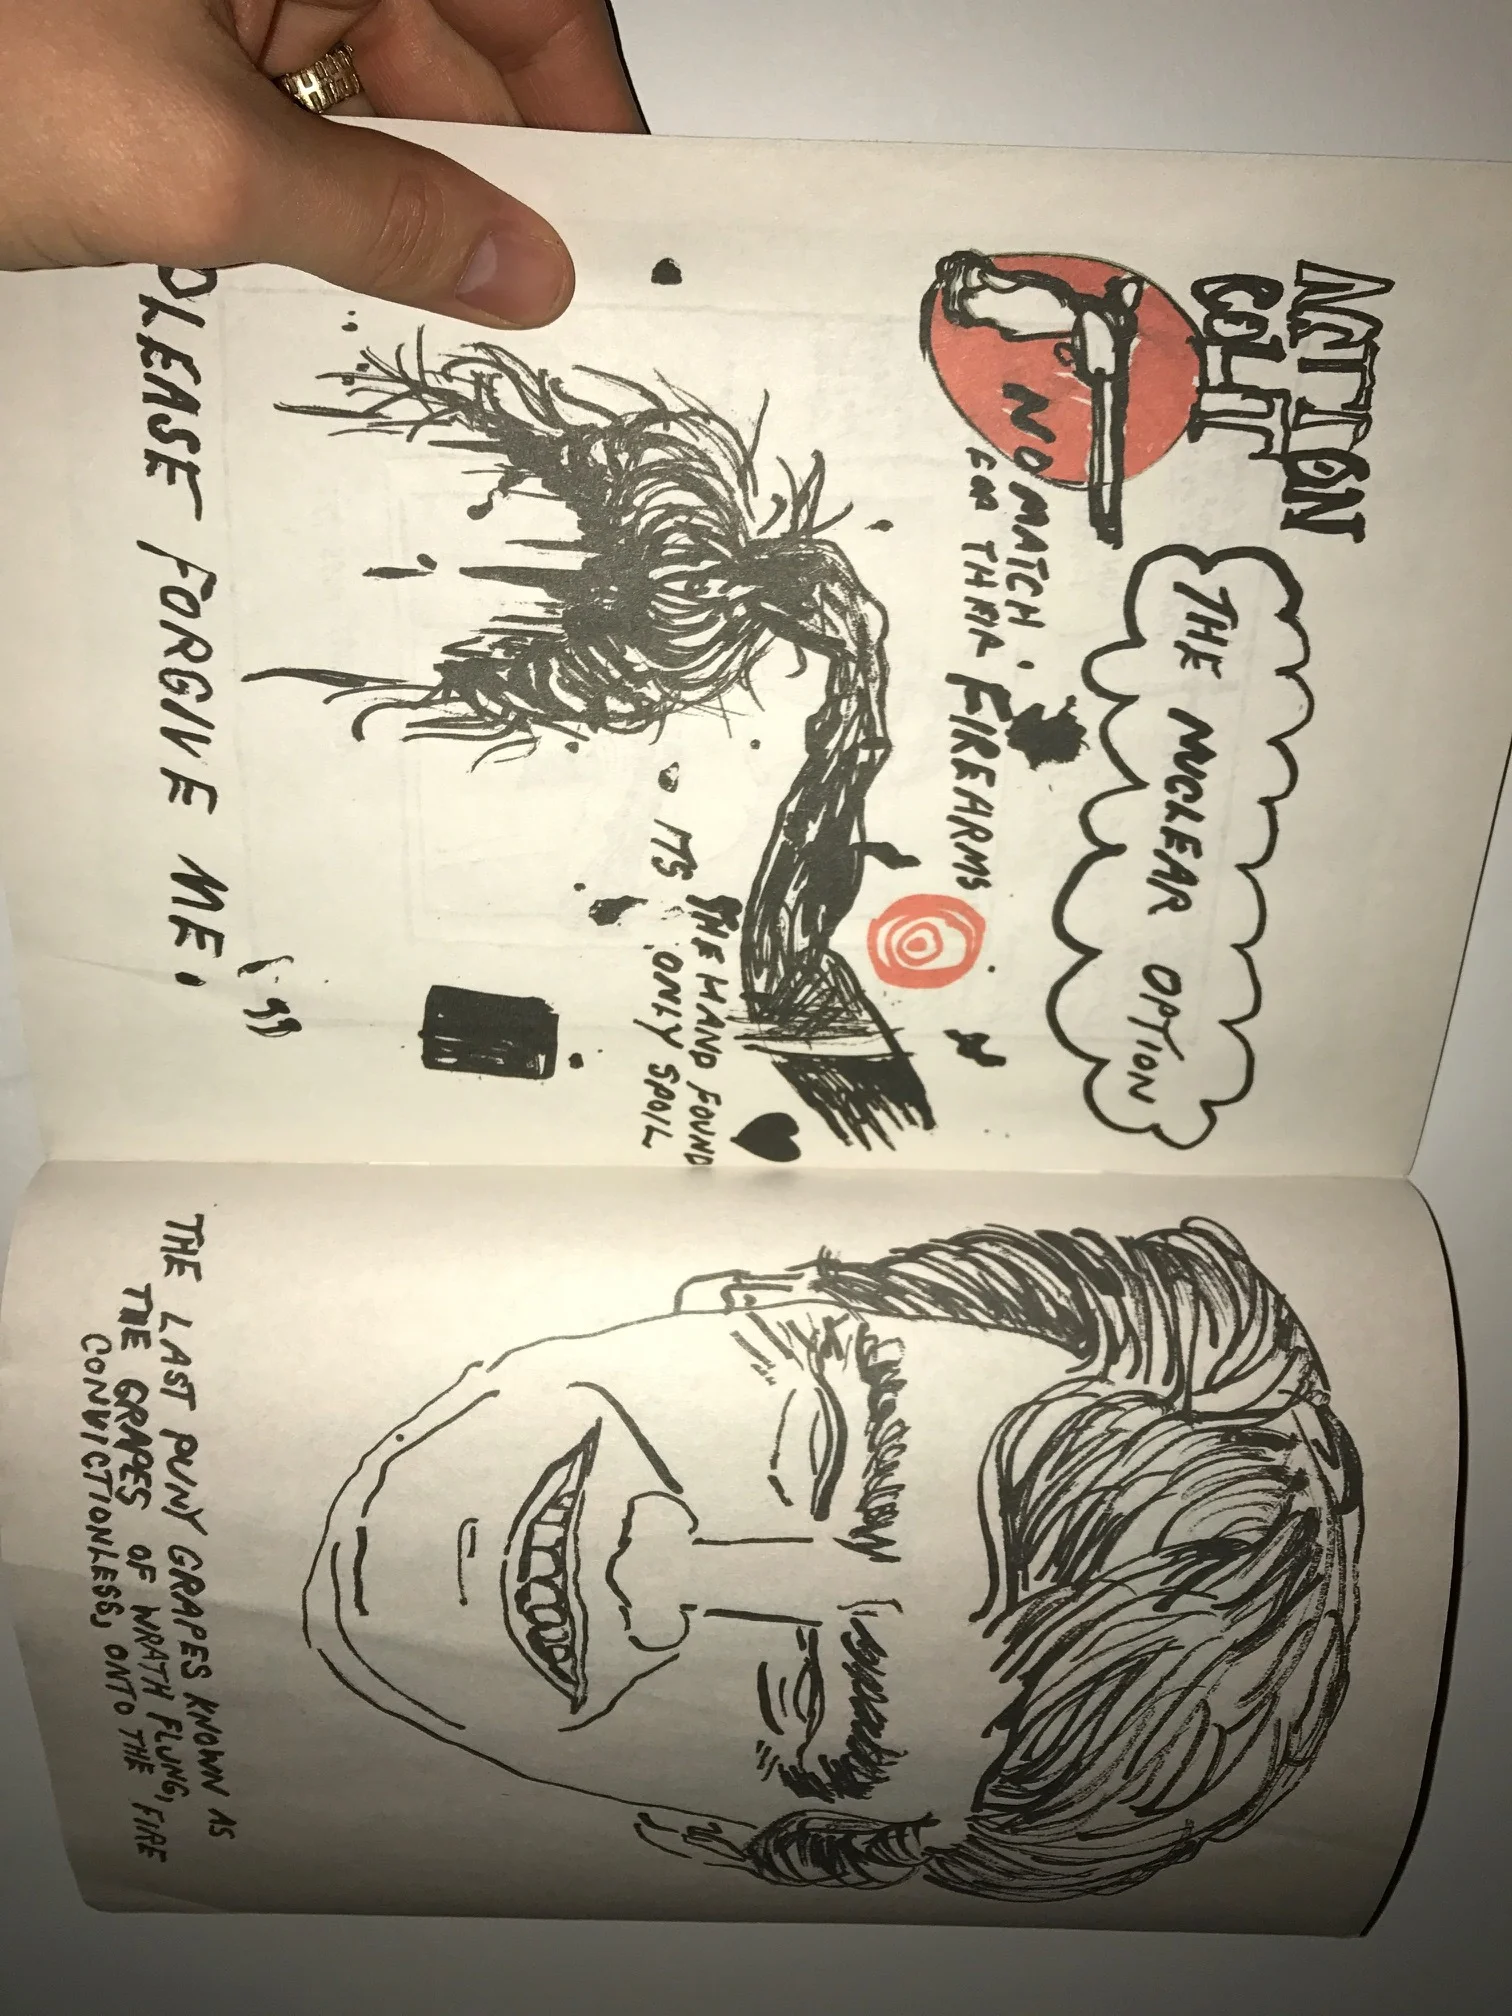 THE NUCLEAR OPTION
NO MATCH
FOR THEIR FIREARMS
ITS THE HAND FOUND
ONLY SPOIL
PLEASE FORGIVE ME.
"
THE LAST PUNY GRAPES KNOWN AS
THE GRAPES OF WRATH FLUNG,
CONVICTIONLESS, ONTO THE FIRE